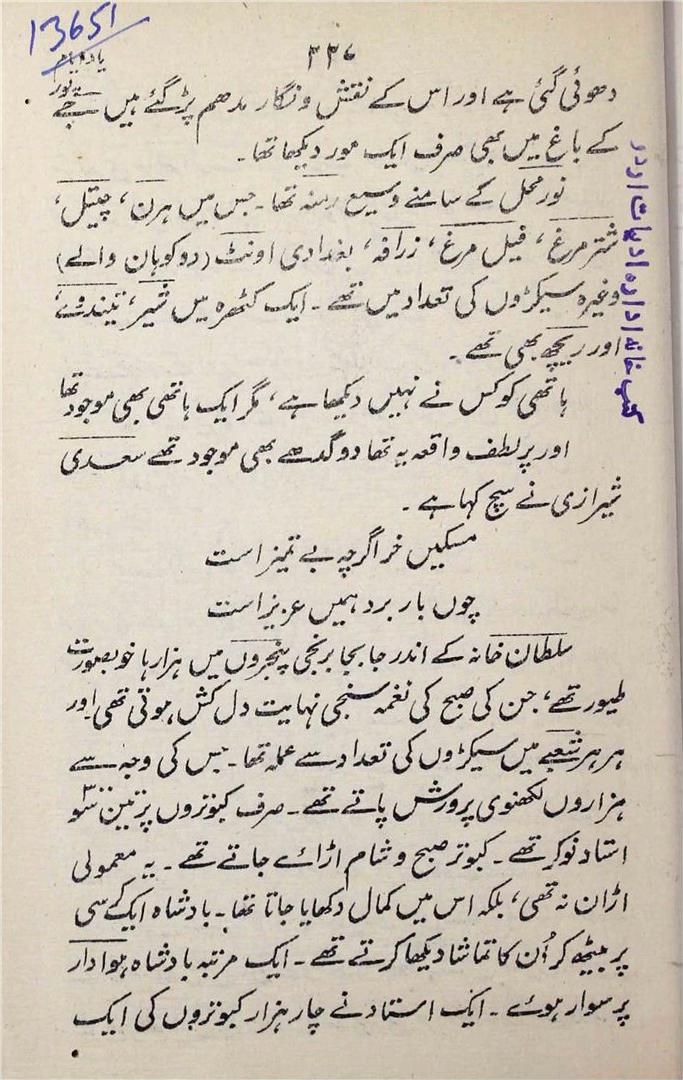 13651
یاد ایام
۳۳۷
دھوئی گئی ہے اور اس کے نقش و نگار مدھم پڑ گئے ہیں جے پور
کے باغ میں بھی صرف ایک مور دیکھا تھا۔
نور محل کے سامنے وسیع رمنہ تھا۔ جس میں ہرن، چیتل،
شتر مرغ، فیل مرغ، زرافہ، بغدادی اونٹ (دو کوہان والے)
وغیرہ سیکڑوں کی تعداد میں تھے۔ ایک کٹھرہ میں شیر، تیندوے،
اور ریچھ بھی تھے۔
ہاتھی کو کس نے نہیں دیکھا ہے، مگر ایک ہاتھی بھی موجود تھا
اور پر لطف واقعہ یہ تھا دو گدھے بھی موجود تھے سعدی
شیرازی نے سچ کہا ہے۔
مسکیں خر اگرچہ بے تمیز است
چوں بار برد ہمیں عزیز است
سلطان خانہ کے اندر جا بجا برنجی پنجروں میں ہزارہا خوبصورت
طیور تھے، جن کی صبح کی نغمہ سنجی نہایت دل کش ہوتی تھی اور
ہر ہر شعبے میں سیکڑوں کی تعداد سے عملہ تھا۔ جس کی وجہ سے
ہزاروں لکھنوی پرورش پاتے تھے۔ صرف کبوتروں پر تین سو
استاد نوکر تھے۔ کبوتر صبح و شام اڑائے جاتے تھے۔ یہ معمولی
اڑان نہ تھی، بلکہ اس میں کمال دکھایا جاتا تھا۔ بادشاہ ایک کرسی
پر بیٹھ کر اُن کا تماشا دیکھا کرتے تھے۔ ایک مرتبہ بادشاہ ہوادار
پر سوار ہوئے۔ ایک استاد نے چار ہزار کبوتروں کی ایک
کتب خانہ ادارہ ادبیات اردو